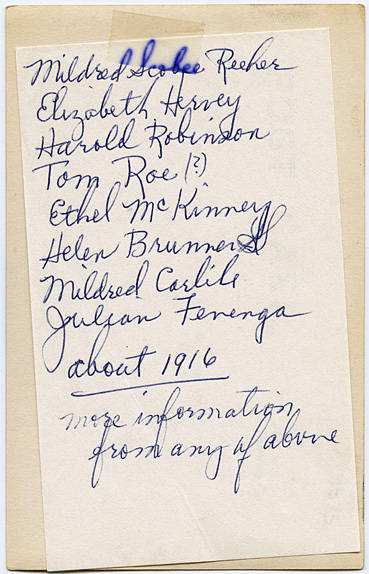 Mildred Scobee Reeher
Elizabeth Hervey
Harold Robinson
Tom Roe (?)
Ethel McKinney
Helen Brunner
Mildred Carlile
Julian Fenenga
about 1916
more information
from any of above